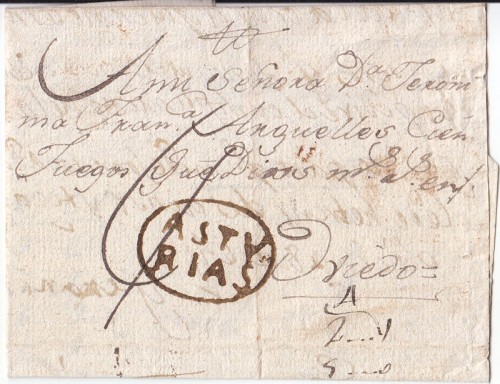 A mi Señora Dª Jeroni-
ma Franª Arguelles Cien
fuegos que Dios mˢ aˢ en
ASTU
RIAS
Oviedo=